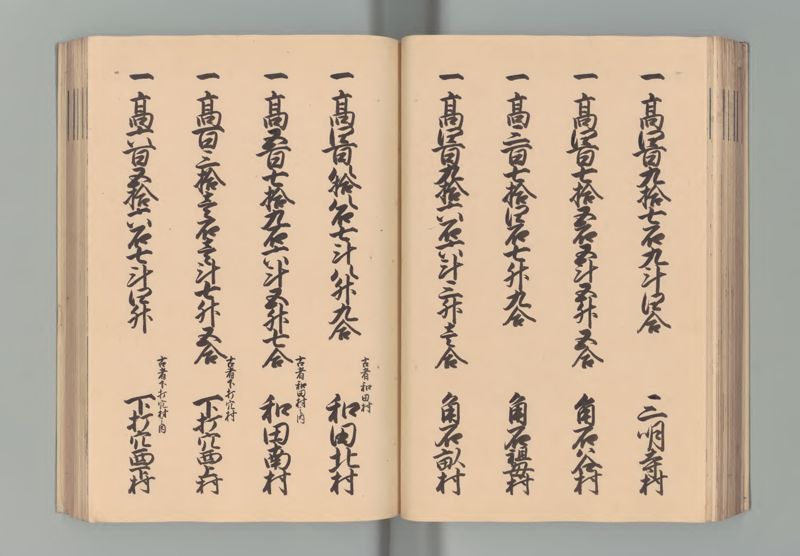 一 高四百九拾七石九斗四合 三明寺村
一 高四百七拾五石五斗五升五合 角石谷村
一 高三百七拾四石七升九合 角石祖母村
一 高四百九拾六石六斗三升壱合 角石畝村
一 高四百八拾八石七斗八升九合
古者和田村
和田北村
一 高五百七拾九石六斗五升七合
古者和田村之内
和田南村
一 高百三拾壱石壱斗七升五合
古者下打穴村
下打穴西上村
一 高六百五拾六石七斗四升
古者下打穴村之内
下打穴西村